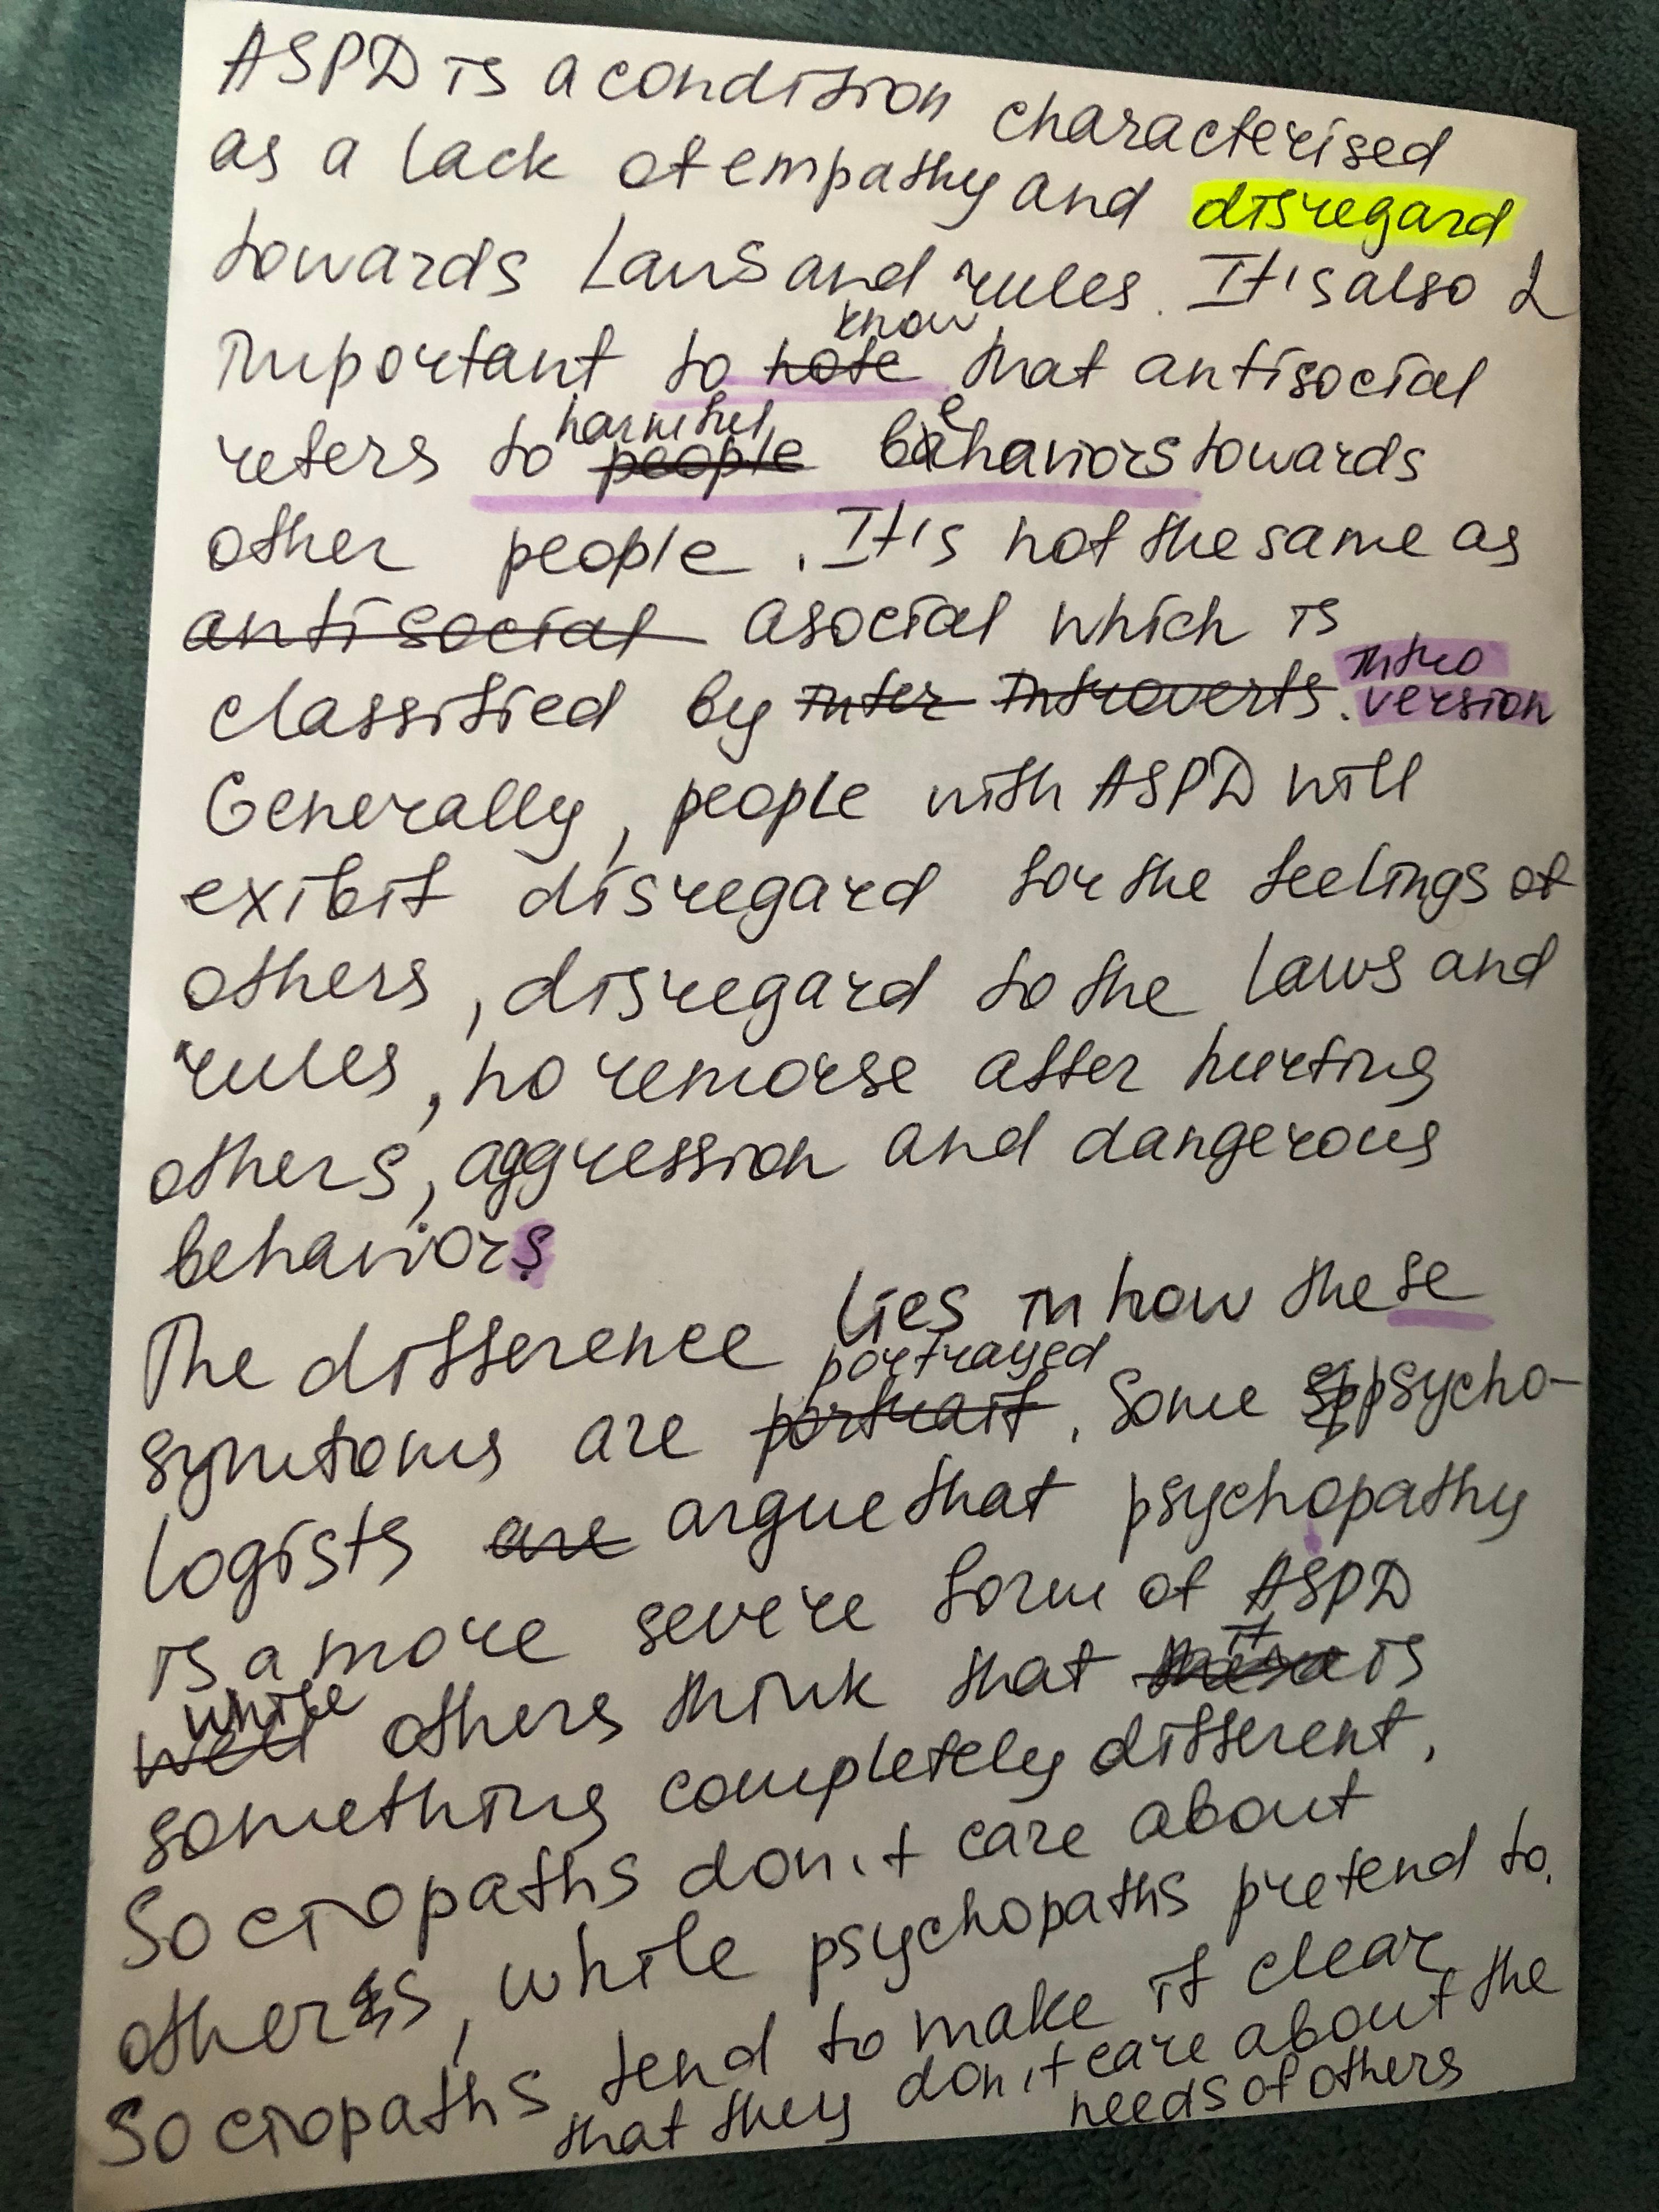 ASPD is a condition characterised
as a lack of empathy and disregard
towards laws and rules. It's also
important to note know that antisocial
refers to people harmful behaviors towards
other people. It's not the same as
antisocial asocial which is
classified by inter introverts. introversion
Generally, people with ASPD will
exibit disregard for the feelings of
others, disregard to the laws and
rules, no remorse after hurting
others, aggression and dangerous
behaviors.
The difference lies in how these
symtoms are portrait portrayed. Some psycho-
logists are argue that psychopathy
is a more severe form of ASPD
well while others think that it is
something completely different.
Sociopaths don't care about
others, while psychopaths pretend to.
Sociopaths tend to make it clear
that they don't care about the
needs of others